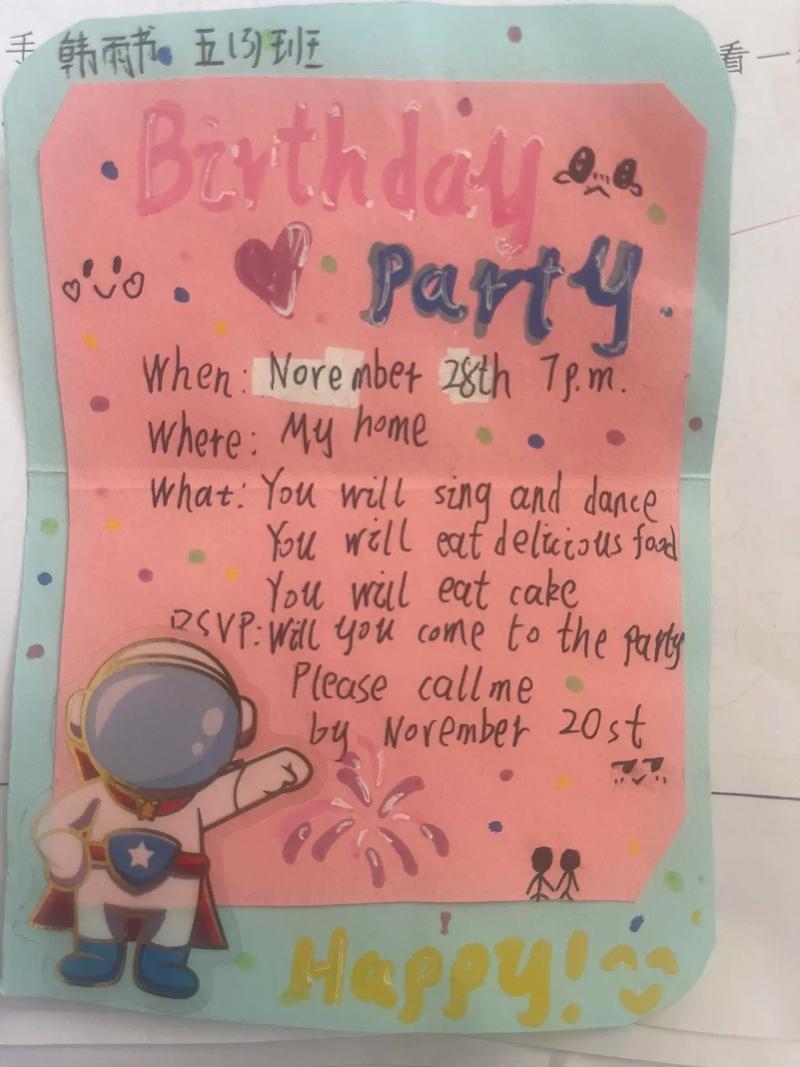 手
韩雨书 五(3)班
看一
Birthday
Party
When: November 28th 7p.m.
Where: My home
What: You will sing and dance
You will eat delicious food
You will eat cake
RSVP: Will you come to the party
Please call me
by November 20st
Happy!